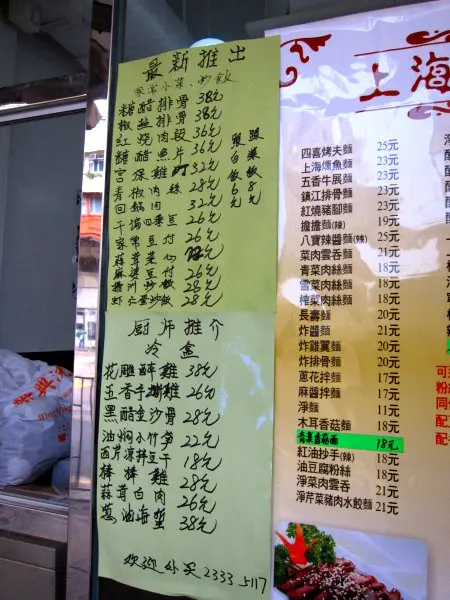 最新推出
糖醋排骨 38元
椒鹽排骨 38元
紅燒肉段 36元
糖醋魚片 36元
宮保雞丁 32元
青椒肉絲 28元
回鍋肉 32元
干煸四季豆 26元
家常豆付 26元
蒜茸菜心
麻婆豆付 26元
揚洲炒飯 28元
虾仁蛋炒飯 28元
跟白飯6元
跟菜飯8元
厨师推介
冷盒
花雕醉雞 38元
五香手撕雞 26元
黑醋金沙骨 28元
油焖小竹笋 22元
西芹凉拌豆干 18元
棒棒雞 28元
蒜茸白肉 26元
葱油海蜇 38元
欢迎外买 2333 5117
上海
四喜烤夫麵 25元
上海燻魚麵 23元
五香牛展麵 23元
鎮江排骨麵 23元
紅燒豬腳麵 23元
擔擔麵(辣) 19元
八寶辣醬麵(辣) 25元
菜肉雲吞麵 21元
青菜肉絲麵 18元
雪菜肉絲麵 18元
榨菜肉絲麵 18元
長壽麵 20元
炸醬麵 21元
炸雞翼麵 20元
炸排骨麵 20元
蔥花拌麵 17元
麻醬拌麵 17元
淨麵 11元
木耳香菇麵 18元
青菜香菇面 18元
紅油抄手(辣) 18元
油豆腐粉絲 18元
淨菜肉雲吞 21元
淨芹菜豬肉水餃麵 21元